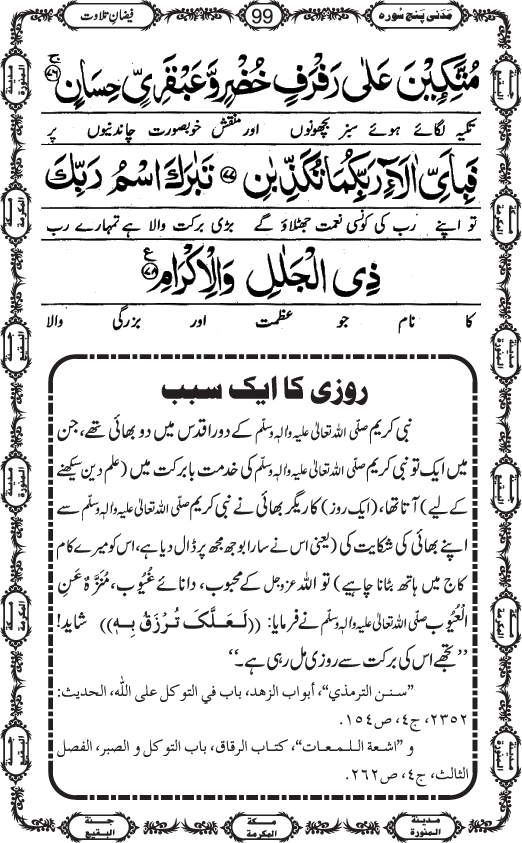 مَدَنی پَنج سُورہ
99
فیضانِ تلاوت
مُتَّكِـِٕیْنَ عَلٰى رَفْرَفٍ خُضْرٍ وَّ عَبْقَرِیٍّ حِسَانٍۚ﴿۷۶﴾
تکیہ لگائے ہوئے سبز بچھونوں اور منقش خوبصورت چاندنیوں پر
فَبِاَیِّ اٰلَآءِ رَبِّكُمَا تُكَذِّبٰنِ ﴿۷۷﴾ تَبٰرَكَ اسْمُ رَبِّكَ
تو اپنے رب کی کونسی نعمت جھٹلاؤ گے بڑی برکت والا ہے تمہارے رب
ذِی الْجَلٰلِ وَ الْاِكْرَامِ۠﴿۷۸﴾
کا نام جو عظمت اور بزرگی والا
روزی کا ایک سبب
نبی کریم صلّی اللہ تعالیٰ علیہ والہٖ وسلّم کے دور اقدس میں دو بھائی تھے، جن
میں ایک تو نبی کریم صلّی اللہ تعالیٰ علیہ والہٖ وسلّم کی خدمت بابرکت میں (علم دین سیکھنے
کے لیے) آتا تھا، (ایک روز) کاریگر بھائی نے نبی کریم صلّی اللہ تعالیٰ علیہ والہٖ وسلّم سے
اپنے بھائی کی شکایت کی (یعنی اس نے سارا بوجھ مجھ پر ڈال دیا ہے، اس کو میرے کام
کاج میں ہاتھ بٹانا چاہیے) تو اللہ عزوجل کے محبوب، دانائے غُیُوب، مُنَزَّہٌ عَنِ
الْعُیُوب صلّی اللہ تعالیٰ علیہ والہٖ وسلّم نے فرمایا: ((لَعَلَّكَ تُرْزَقُ بِهِ)) شاید!
”تجھے اس کی برکت سے روزی مل رہی ہے۔“
”سنن الترمذي“، أبواب الزهد، باب في التوكل على الله، الحديث:
٢٣٥٢، ج٤، ص١٥٤.
و ”اشعة اللمعات“، كتاب الرقاق، باب التوكل و الصبر، الفصل
الثالث، ج٤، ص٢٦٢.
مدینۃ المنورۃ
مکۃ المکرمۃ
جنۃ البقیع